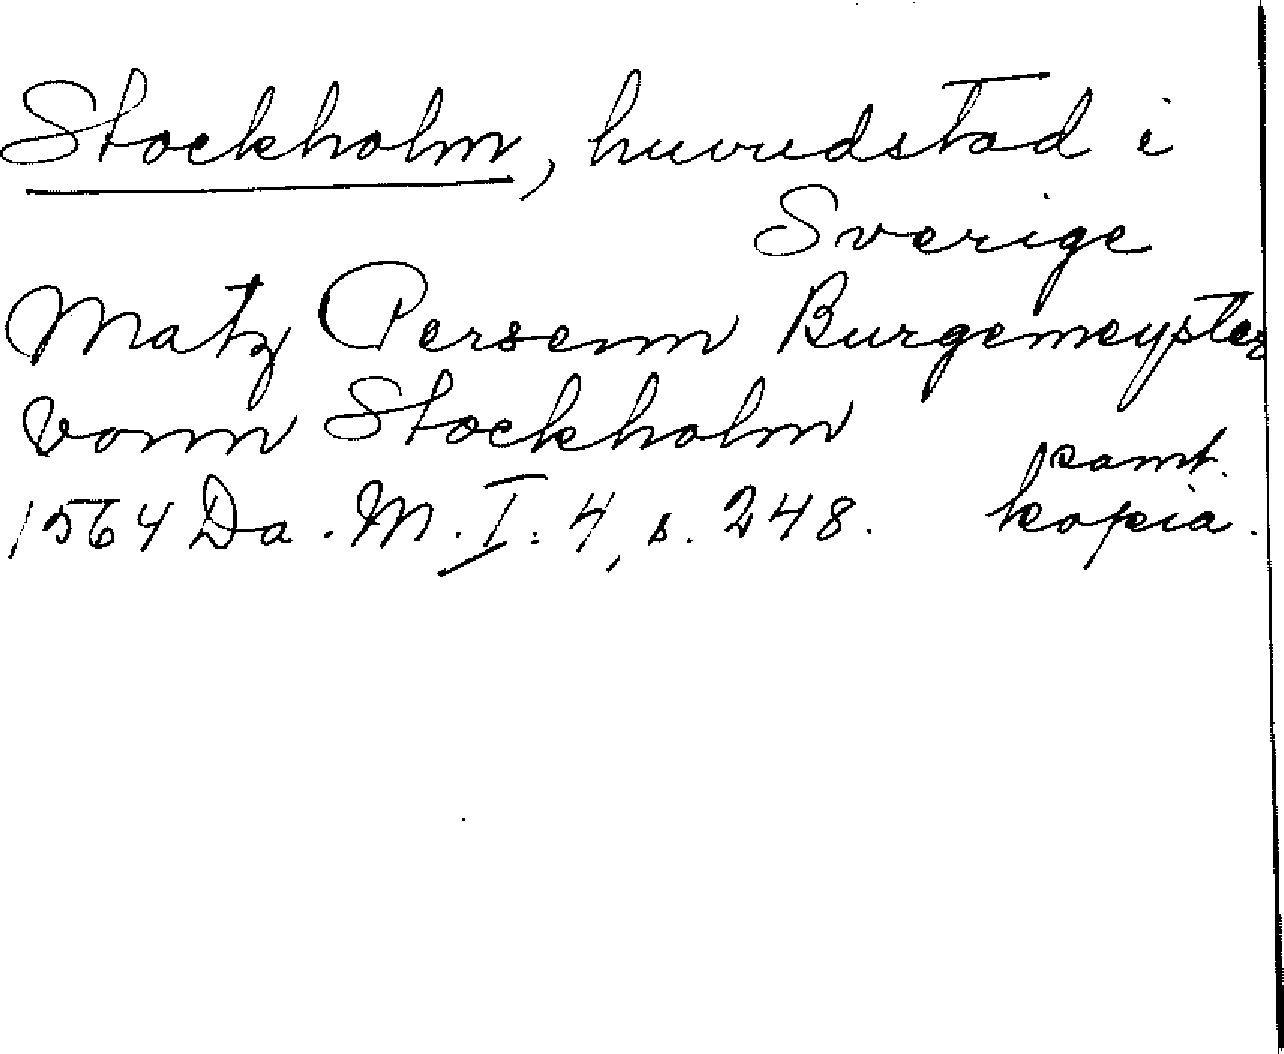 Stockholm, huvudstad i
Sverige
Matz Persenn Burgemeyster
vonn Stockholm
samt.
1564 Da. M. I: 4, s. 248. kopia.